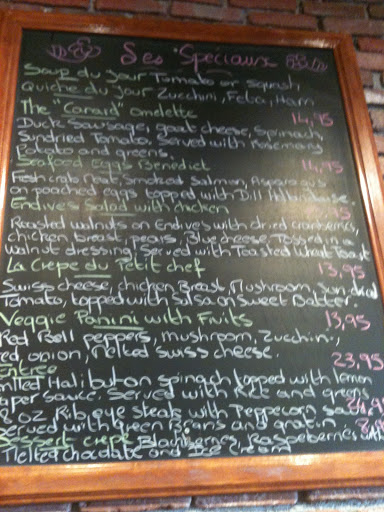 Les Spéciaux
Soup du jour Tomato or squash,
Quiche du jour Zucchini, Feta, Ham
The "Canard" omelette 14,95
Duck Sausage, goat cheese, Spinach,
Sundried Tomato, Served with Rosemary
Potato and greens.
Seafood Eggs Benedict 14,95
Fresh crab meat, Smoked Salmon, Asparagus
on poached eggs topped with Dill Hollandaise
Endives Salad with chicken
Roasted walnuts on Endives with dried cranberries,
chicken breast, pears, Blue cheese, Tossed in a
walnut dressing, Served with Toasted Wheat Toast
La Crepe du Petit chef 13,95
Swiss cheese, chicken Breast, Mushroom, Sun dried
Tomato, topped with Salsa on Sweet Batter.
Veggie Panini with Fruits 13,95
Red Bell peppers, mushroom, Zucchini,
red onion, melted Swiss cheese.
Entrée 23,95
Grilled Halibut on spinach topped with lemon
Caper Sauce. Served with Rice and greens
8'oz Rib eye steak with Peppecorn sauce
Served with Green Beans and gratin
Dessert crepe Blackberries, Raspeberries
Melted chocolate and Ice Cream